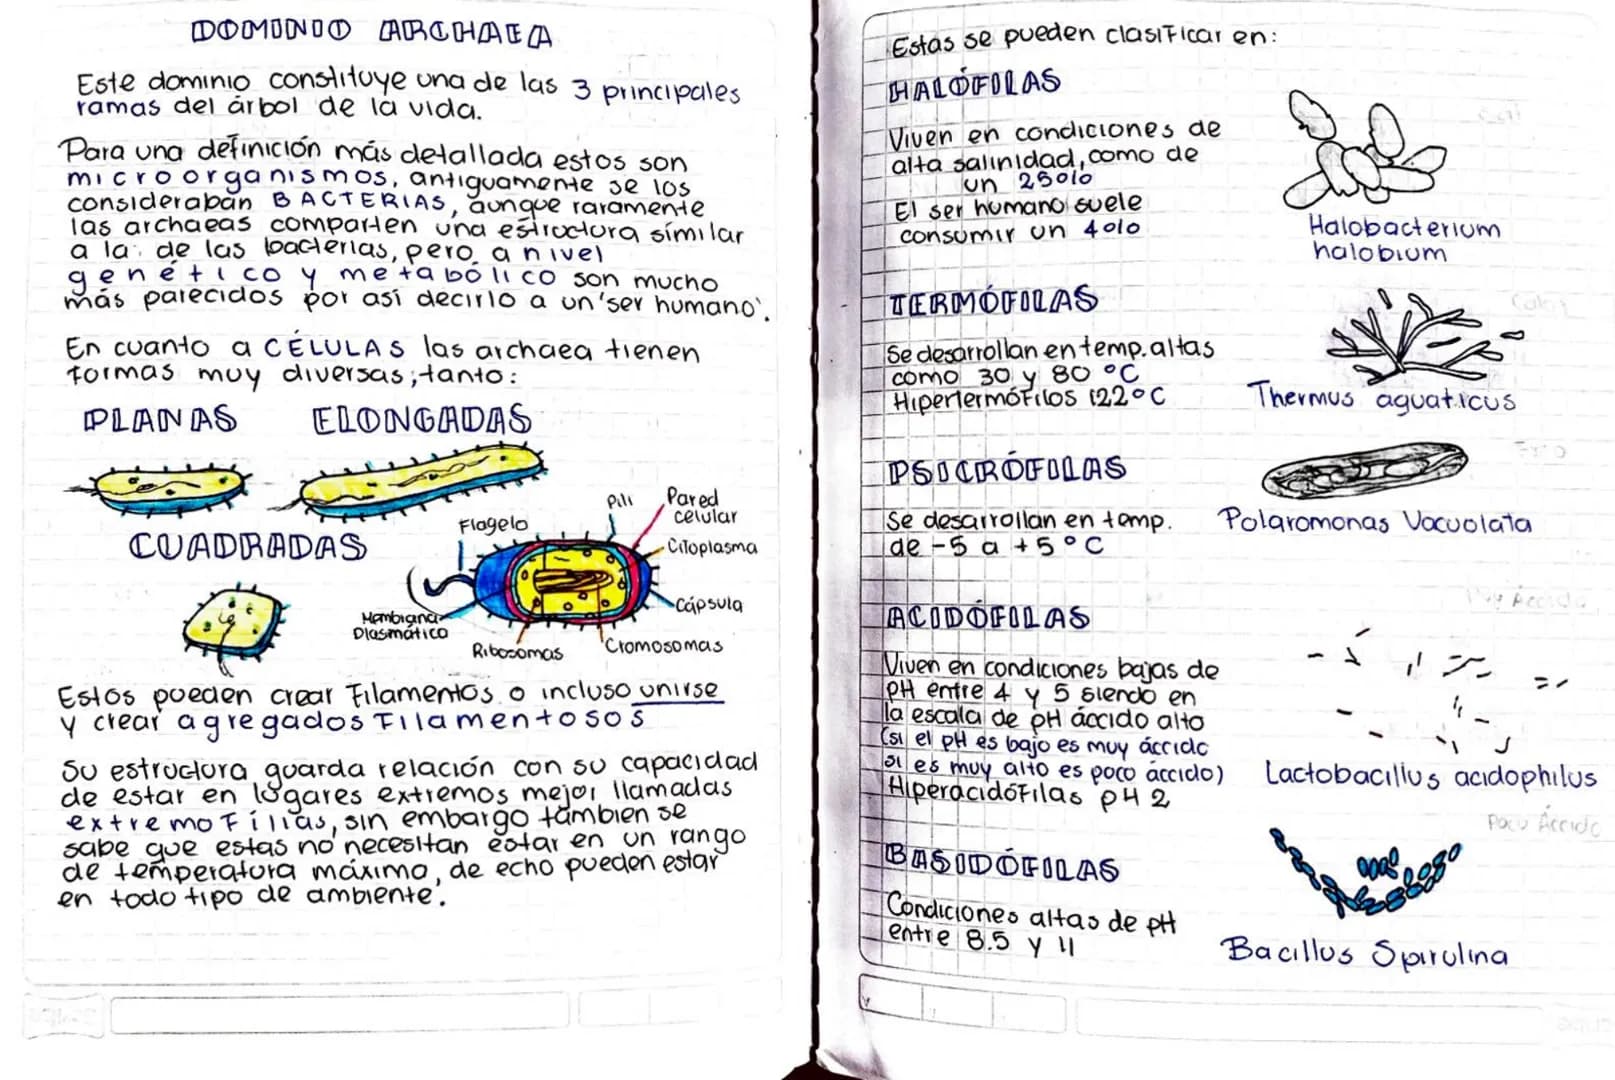 DOMINIO ARCHAEA
Este dominio constituye una de las 3 principales
ramas del árbol de la vida.
Para una definición más detallada estos son
microorganismos, antiguamente se los
consideraban BACTERIAS, aunque raramente
las archaeas comparten una estructura similar
a la de las bacterias, pero a nivel
genético y metabólico son mucho
más parecidos por así decirlo a un 'ser humano'.
En cuanto a CÉLULAS las archaea tienen
formas muy diversas; tanto:
PLANAS ELONGADAS
CUADRADAS
Flagelo
Pili
Pared
celular
Citoplasma
Cápsula
Cromosomas
Ribosomas
Membrana
Plasmático
Estos pueden crear Filamentos o incluso unirse
y crear agregados Filamentosos
Su estructura guarda relación con su capacidad
de estar en lugares extremos mejor llamadas
extremoFilias, sin embargo tambien se
sabe que estas no necesitan estar en un rango
de temperatura máximo, de echo pueden estar
en todo tipo de ambiente.
Estas se pueden clasificar en:
HALÓFILAS
Viven en condiciones de
alta salinidad, como de
un 25%
El ser humano suele
consumir un 4%
Halobacterium
halobium
TERMÓFILAS
Se desarrollan en temp. altas
como 30 y 80 °C
Hipertermófilos 122°C
Calor
Thermus aquaticus
PSICRÓFILAS
Se desarrollan en temp.
de -5 a +5°C
Frío
Polaromonas Vacuolata
ACIDÓFILAS
Viven en condiciones bajas de
pH entre 4 y 5 siendo en
la escala de pH áccido alto
(si el pH es bajo es muy áccido
si es muy alto es poco áccido)
Hiperacidófilas pH 2
Muy Áccido
Lactobacillus acidophilus
BASIDÓFILAS
Condiciones altas de pH
entre 8.5 y 11
Poco Áccido
Bacillus Spirulina